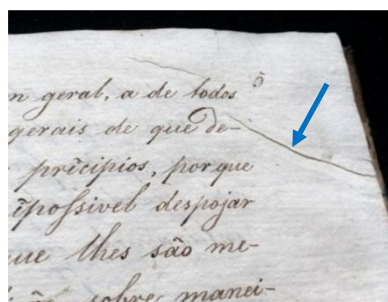 n geral, a de todos
5
gerais de que de-
prĩcipios, porque
ĩpossivel despojar
ue lhes são me-
sobre manei-